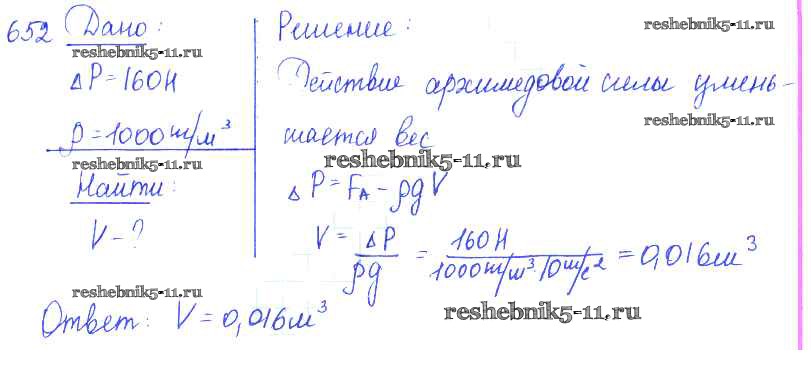 652 Дано:
reshebnik5-11.ru
ΔP=160Н
ρ=1000кг/м³
reshebnik5-11.ru
Найти:
V-?
Решение:
reshebnik5-11.ru
Действие архимедовой силы умень-
reshebnik5-11.ru
шается вес
reshebnik5-11.ru
ΔP=FА-ρgV
V = ΔP/ρg = 160Н/1000кг/м³·10м/с² = 0,016м³
reshebnik5-11.ru
reshebnik5-11.ru
Ответ: V=0,016м³